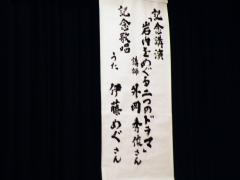 記念講演
「岩内をめぐる二つのドラマ」
講師 外岡秀俊さん
記念歌唱
うた 伊藤めぐさん